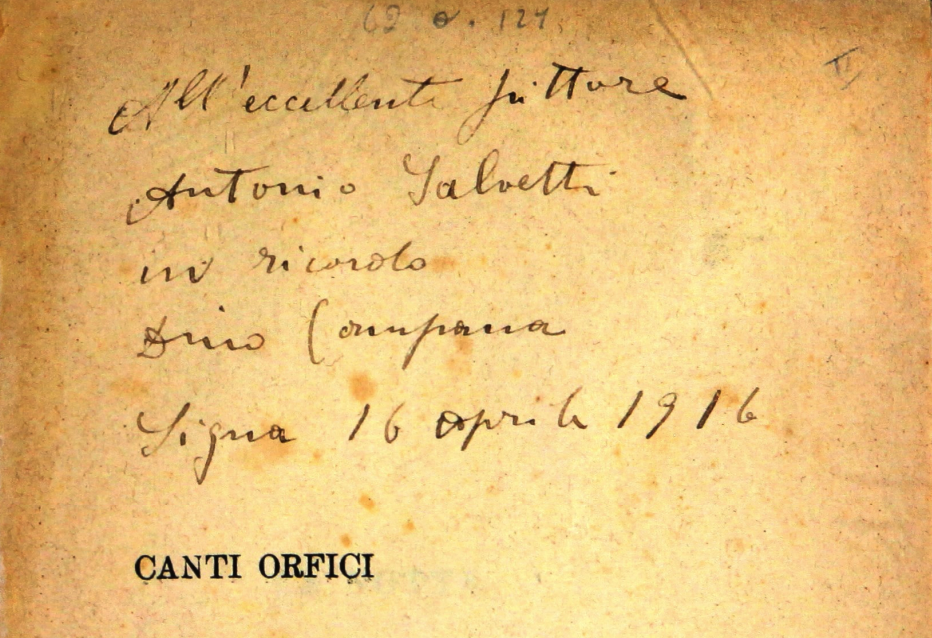 62 a. 124
II
All'eccellente pittore
Antonio Salvetti
in ricordo
Dino Campana
Signa 16 aprile 1916
CANTI ORFICI